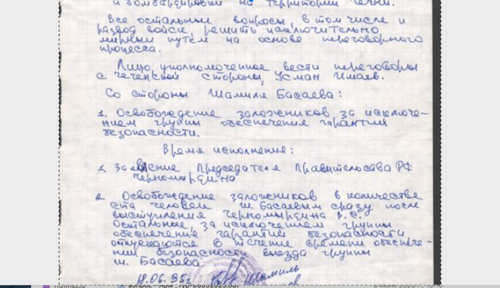 и бомбардировки на территории Чечни.
Все остальные вопросы, в том числе и
развод войск, решить исключительно
мирным путем на основе переговорного
процесса.
Лицо, уполномоченное вести переговоры
с чеченской стороны, Усман Имаев.
Со стороны Шамиля Басаева:
1. Освобождение заложников за исключе-
нием группы обеспечения гарантий
безопасности.
Время исполнения:
Заявление Председателя Правительства РФ
Черномырдина
2. Освобождение заложников в количестве
ста человек Ш. Басаевым сразу после
выступления Черномырдина В.С.
Остальные за исключением группы
обеспечения гарантий безопасности
отпускаются в течение времени обеспече-
ния безопасности выезда группы
Ш. Басаева.
18.06.95г. Шамиль